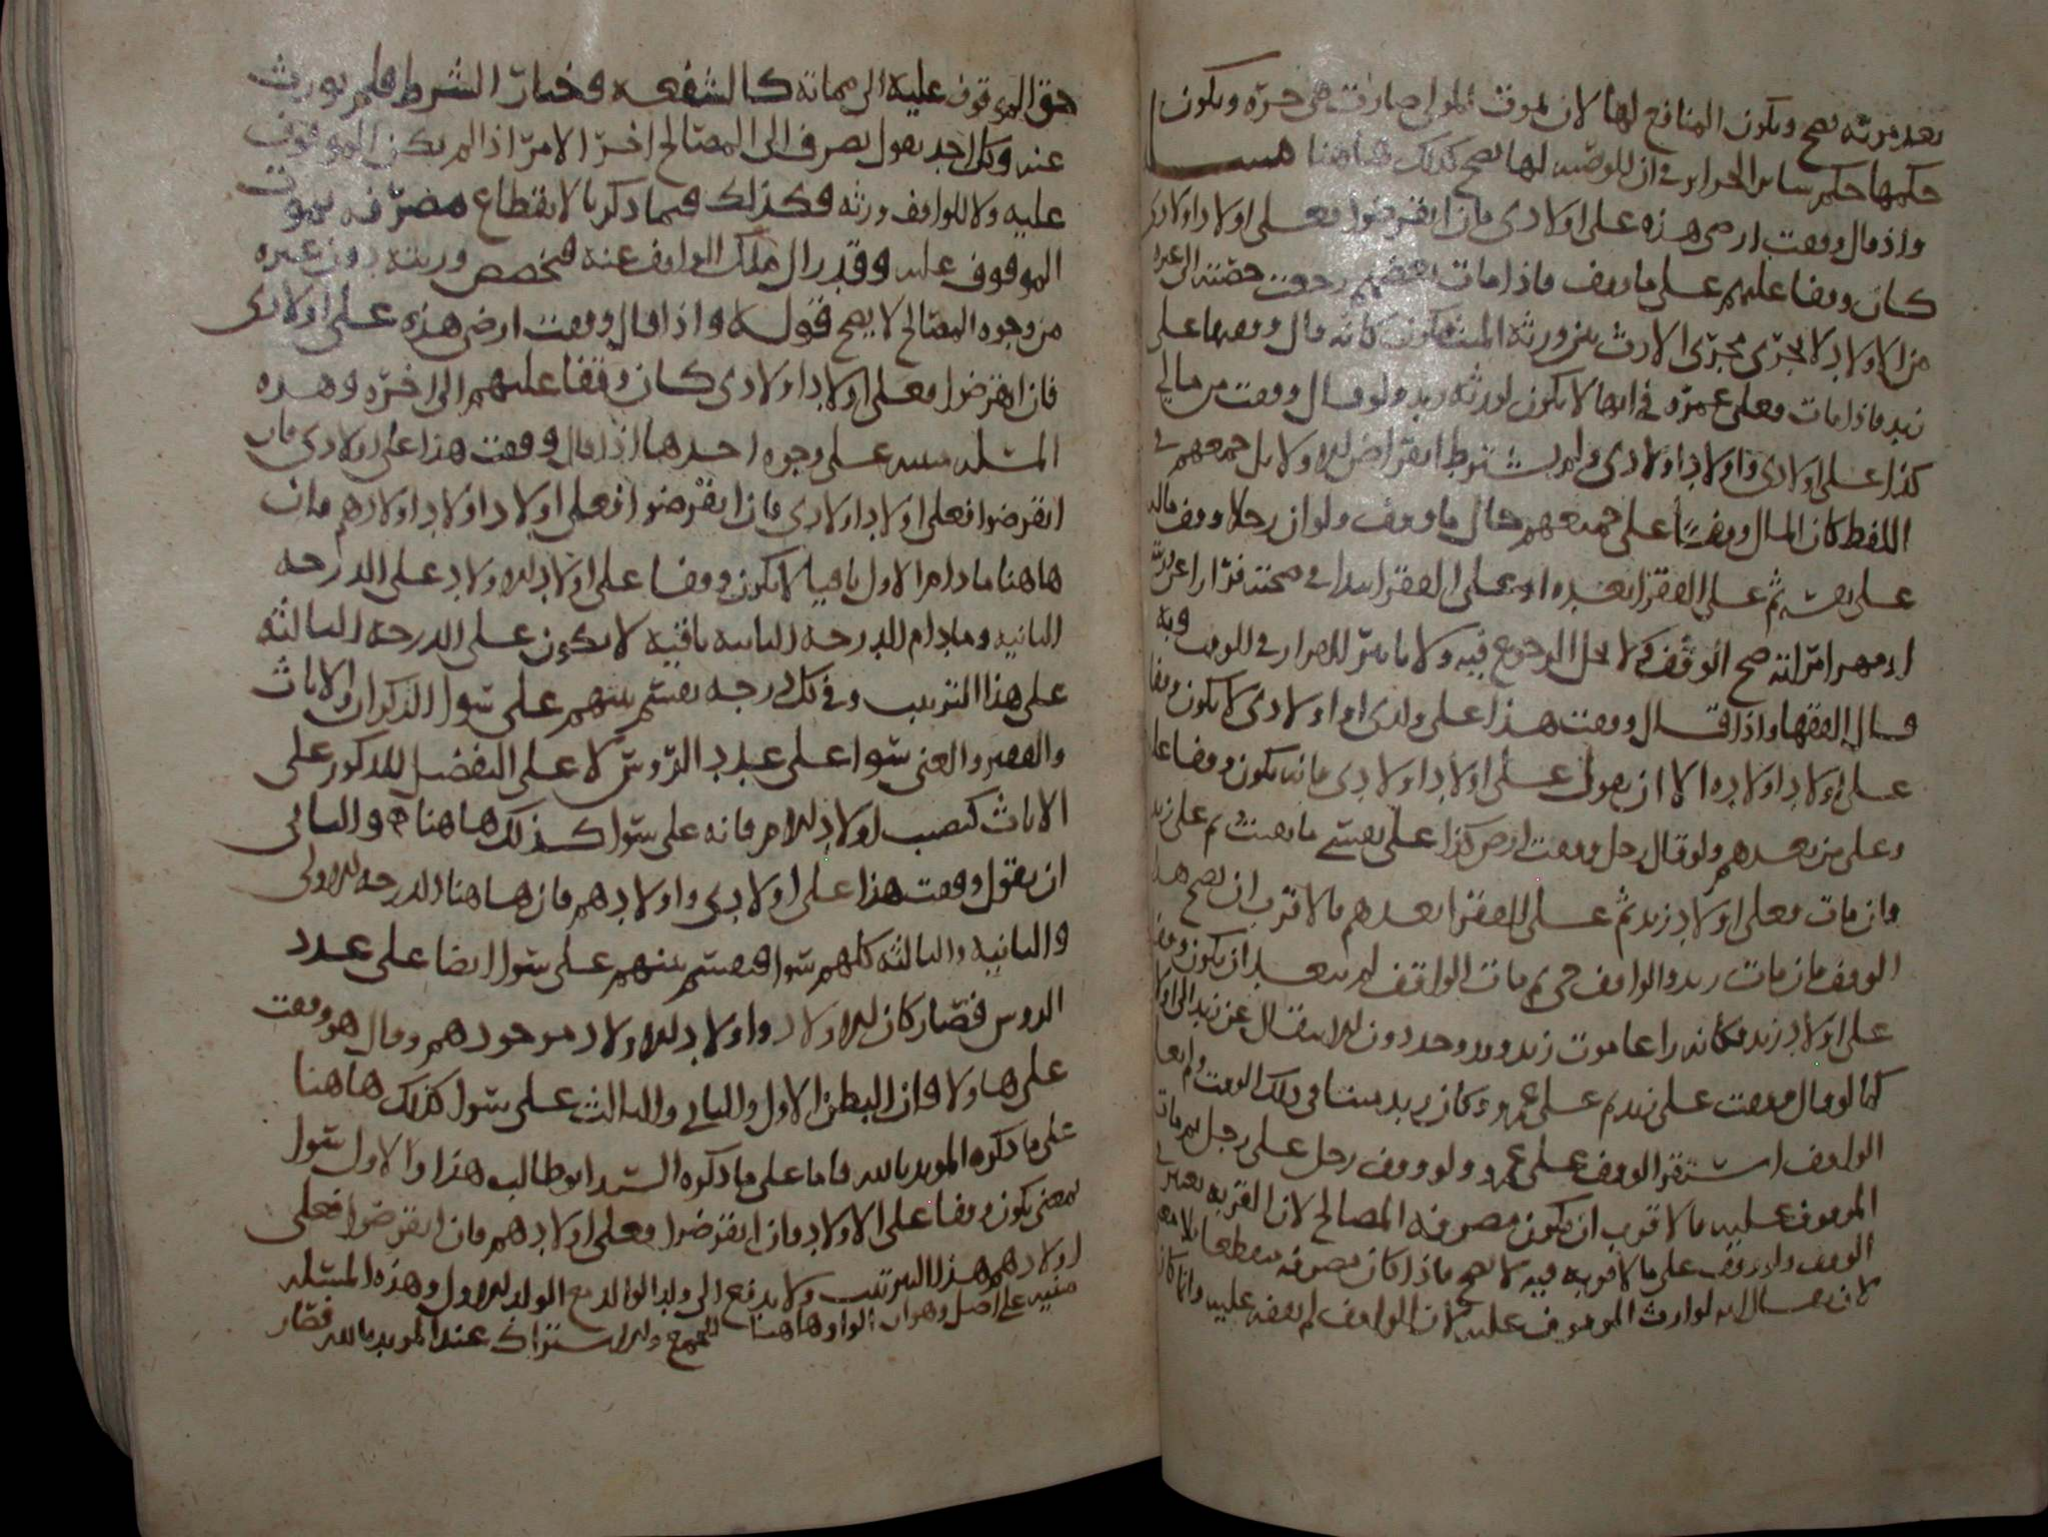 بعد موته يصح ويكون المنافع لها لان بموت المولى صارت هى حرّه ويكون
حكمها حكم ساير الحراير فى ان الوصيه لها يصح كذلك هاهنا
واذ قال وقفت ارضى هذه على اولادى فان انقرضوا فعلى اولاد اولادى
كان وقفا عليهم على ما وقف فاذا مات بعضهم رجعت حصّته الى غيره
من الاولاد لا يجرى مجرى الارث بين ورثه الميت فيكون كانه قال وقفها على
زيد فاذا مات فعلى عمرو فى انها لا يكون لورثه زيد ولو قال وقفت من مالى
كذا على اولادى واولاد اولادى ولم يشترط انقراض الاولا بل جمعهم فى
اللفظ كان المال وقفًا على جميعهم حال ما وقف ولو ان رجلا وقف ماله
على نفسه ثم على الفقرا بعده او على الفقرا ابتدا فى صحته فرّارا عن الدين
او مهر امرّاته صح الوقف ولا يحل الرجوع فيه ولا تاثير للضرار فى الوقف وبه
قال الفقها واذا قال وقفت هذا على ولدى او اولادى لا يكون وقفا
على اولاد اولاده الا ان يقول على اولاد اولادى فانه يكون وقفا على
وعلى من بعدهم ولو قال رجل وقفت ارض كذا على نفسى ما بقيت ثم على زيد
وان مات فعلى اولاد زيد ثم على الفقرا بعدهم فالاقرب ان يصح هذا
الوقف فان مات زيد والواقف حى ثم مات الواقف لم يبعد ان يكون وقفا
على اولاد زيد فكانه راعا موت زيد وقد وجد دون الانتقال عن زيد الى اولا
كما لو قال وقفت على زيد ثم على عمرو وكان زيد ميتا فى ذلك الوقت
الواقف استقر الوقف على عمرو ولو وقف رجل على رجل ثم مات
الموقوف عليه فالاقرب ان يكون مصرفه المصالح لان القربه يعتبر فى
الوقف ولو وقف على ما لا قربه فيه لا يصح فاذا كان مصرفه منقطعا
لا يقال انه لوارث الموقوف عليه لان الواقف لم يقفه عليه وانما كان
حق الموقوف عليه الى مماته كالشفعه وخيار الشرط فلم يورث
عنه وكل احد يقول يصرف الى المصالح اخر الامر اذا لم يكن الموقوف
عليه ولا للواقف ورثه فكذلك فيما ذكرنا لانقطاع مصرفه بموت
الموقوف عليه وقد زال ملك الواقف عنه فتخصص ورثته دون غيره
من وجوه المصالح لا يصح قوله واذا قال وقفت ارضى هذه على اولادى
فان انقرضوا فعلى اولاد اولادى كان وقفا عليهم الى اخره وهذه
المسئله مبنيه على وجوه احدها اذا قال وقفت هذا على اولادى فان
انقرضوا فعلى اولاد اولادى فان انقرضوا فعلى اولاد اولاد اولادهم فان
هاهنا ما دام الاول باقيا لا يكون وقفا على اولاد الاولاد على الدرجه
الثانيه وما دام الدرجه الثانيه باقيه لا يكون على الدرجه الثالثه
على هذا الترتيب وفى كل درجه يقسم بينهم على سوا الذكران والاناث
والفقير والغنى سوا على عدد الرّوس لا على التفضيل للذكور على
الاناث كنصيب اولاد الام فانه على سوا كذلك هاهنا والثانى
ان يقول وقفت هذا على اولادى واولادهم فان هاهنا الدرجه الاولى
والثانيه والثالثه كلهم سوا فيقسم بينهم على سوا ايضا على عدد
الروس فصار كان الاولاد واولاد الاولاد موجودهم وقال هو وقفت
على هاولا فان البطن الاول والثانى والثالث على سوا كذلك هاهنا
على ما ذكره المويد بالله فاما على ما ذكره السيد ابو طالب هذا والاول سوا
بمعنى يكون وقفا على الاولاد فان انقرضوا فعلى اولادهم فان انقرضوا فعلى
اولادهم هذا الترتيب ولا يدفع الى ولد الوالد مع الولد الاول وهذه المسئله
مبنيه على اصل وهو ان الواو هاهنا للجمع والاشتراك عند المويد بالله فصار